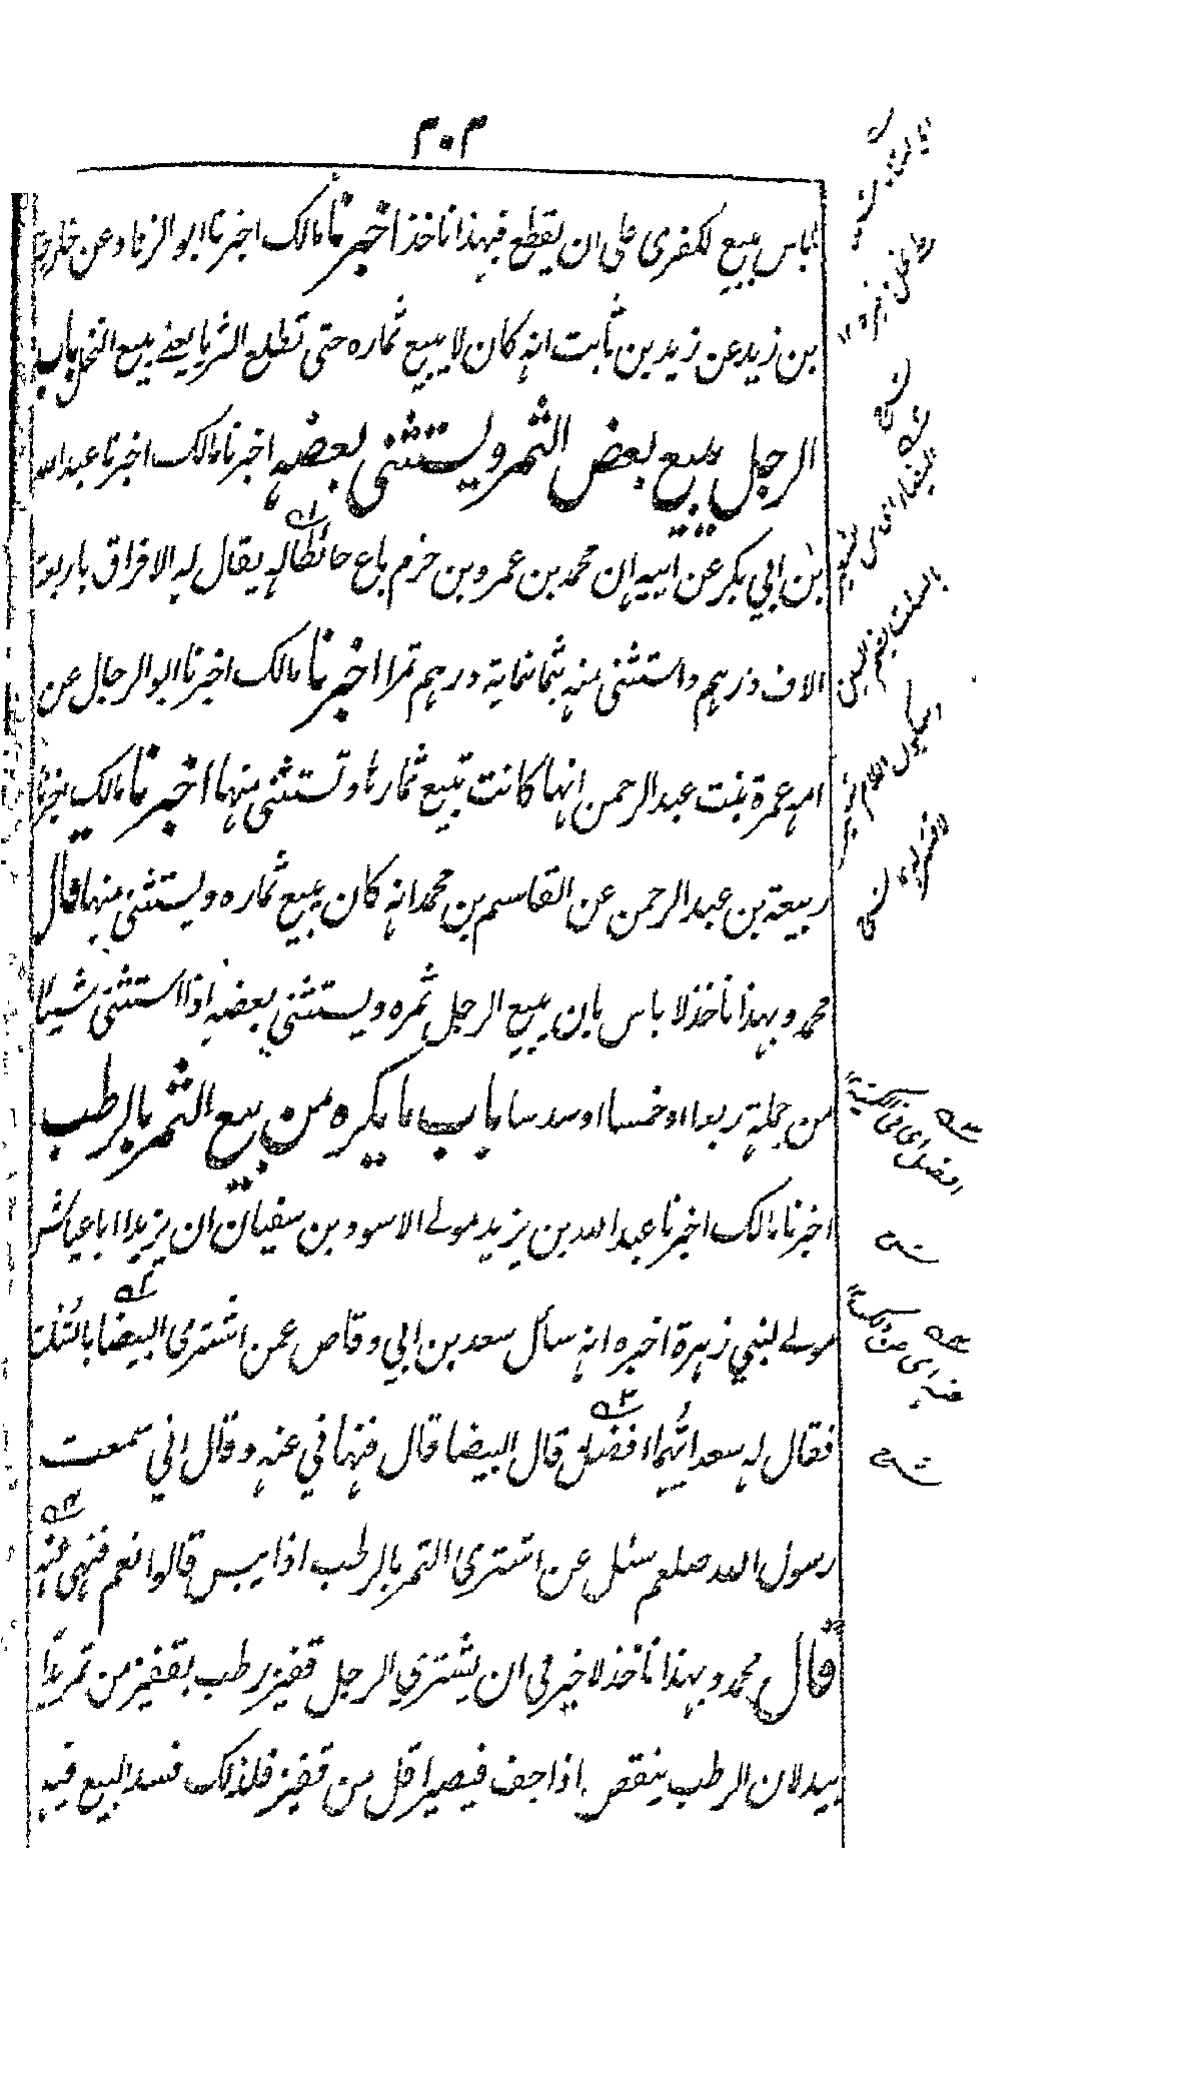 ٣٠٣
لا باس ببيع لكفرى على ان يقطع فبهذا ناخذ اخبرنا مالك اخبرنا ابو الزناد عن خارجة
بن زيد عن زيد بن ثابت انه كان لا يبيع ثماره حتى تطلع الثريا يعنے بيع النخل باب
الرجل يبيع بعض الثمر ويستثنى بعضه اخبرنا مالك اخبرنا عبد الله
بن ابي بكر عن ابيه ان محمد بن عمرو بن حزم باع حائطا له يقال له الافراق باربعة
الاف درهم واستثنى منه بثمانماية درهم تمرا اخبرنا مالك اخبرنا ابو الرجال عن
امه عمرة بنت عبد الرحمن انها كانت تبيع ثمارها وتستثنى منها اخبرنا مالك اخبرنا
ربيعة بن عبد الرحمن عن القاسم بن محمد انه كان يبيع ثماره ويستثنى منها قال
محمد وبهذا ناخذ لا باس بان يبيع الرجل ثمره ويستثنى بعضه اذا استثنى شيئا
من جملة ربعا او خمسا او سدسا باب ما يكره من بيع التمر بالرطب
اخبرنا مالك اخبرنا عبد الله بن يزيد مولے الاسود بن سفيان ان زيدا ابا عياش
مولے لبني زهرة اخبره انه سأل سعد بن ابي وقاص عمن اشترى البيضا بالسُلت
فقال له سعد ايُّهما افضل قال البيضا قال فنهاني عنه وقال اني سمعت
رسول الله صلعم سئل عن اشترى التمر بالرطب اذا يبس قالوا نعم فنهى عنه
قال محمد وبهذا ناخذ لا خير في ان يشتري الرجل قفيز رطب بقفيز من تمر يدا
بيد لان الرطب ينقص اذا جف فيصير اقل من قفيز فلذلك فسد البيع فيه